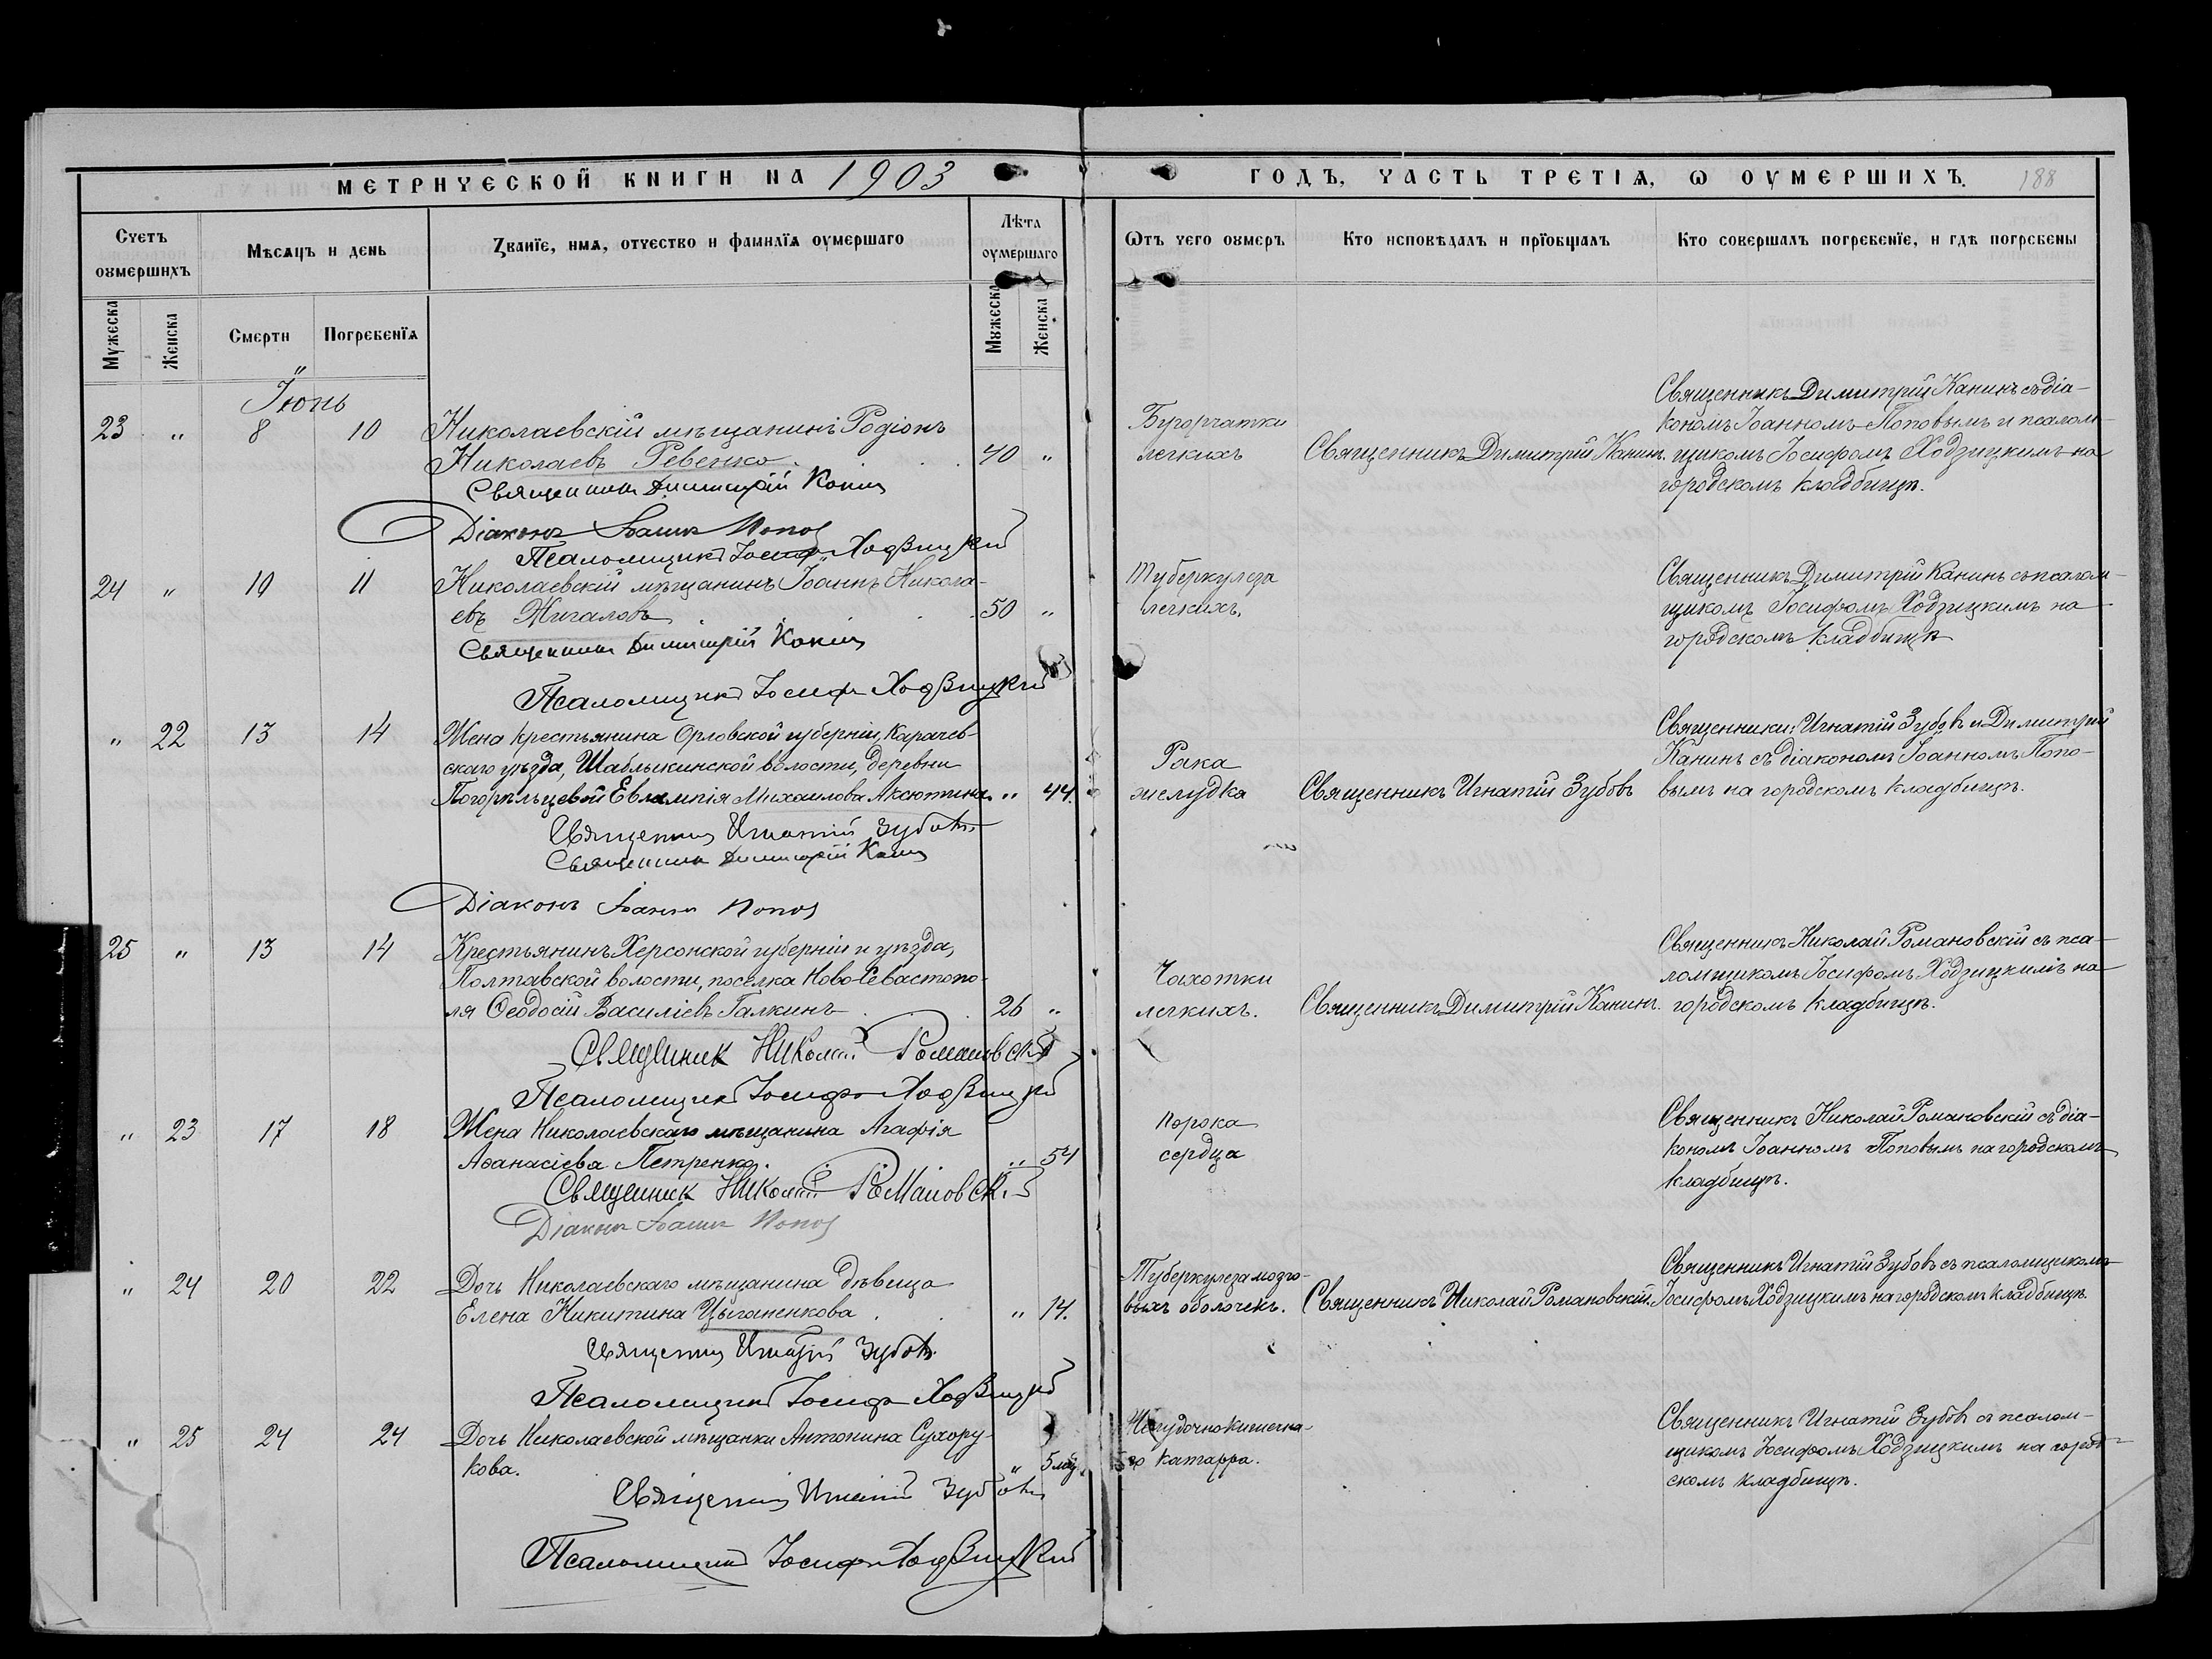 МЕТРИЧЕСКОЙ КНИГИ НА 1903
ГОДЪ, ЧАСТЬ ТРЕТІѦ, Ѡ ОУМЕРШИХЪ.
188
Счетъ оумершихъ
Мѣсѧцъ и день
Званіе, имѧ, отчество и фамиліѧ оумершаго
Лѣта оумершаго
Ѿтъ чего оумеръ
Кто исповѣдалъ и пріобщалъ
Кто совершалъ погребеніе, и гдѣ погребены
Мужеска
Женска
Смерти
Погребеніѧ
Мужеска
Женска
Іюнь
23 " 8 10 Николаевскій мѣщанинъ Родіонъ
Николаевъ Ревенко. 40 "
Священникъ Димитрій Канинъ
Діаконъ Іоаннъ Поповъ
Псаломщикъ Іосифъ Ходзицкій
Бугорчатки
легкихъ
Священникъ Димитрій Канинъ.
Священникъ Димитрій Канинъ съ діа-
кономъ Іоанномъ Поповымъ и псалом-
щикомъ Іосифомъ Ходзицкимъ на
городскомъ кладбищѣ.
24 " 10 11 Николаевскій мѣщанинъ Іоаннъ Никола-
евъ Жигаловъ 50 "
Священникъ Димитрій Канинъ
Псаломщикъ Іосифъ Ходзицкій
Туберкулеза
легкихъ.
Священникъ Димитрій Канинъ съ псалом-
щикомъ Іосифомъ Ходзицкимъ на
городскомъ кладбищѣ
" 22 13 14 Жена крестьянина Орловской губерніи, Карачев-
скаго уѣзда, Шаблыкинской волости, деревни
Погорѣльцевой Евлампія Михаилова Аксютина. " 44.
Священникъ Игнатій Зубовъ
Священникъ Димитрій Канинъ
Діаконъ Іоаннъ Поповъ
Рака
желудка
Священникъ Игнатій Зубовъ
Священники: Игнатій Зубовъ и Димитрій
Канинъ съ діакономъ Іоанномъ Попо-
вымъ на городскомъ кладбищѣ.
25 " 13 14 Крестьянинъ Херсонской губерніи и уѣзда,
Полтавской волости, поселка Ново-Севастопо-
ля Ѳеодосій Василіевъ Галкинъ 26 "
Священникъ Николай Романовскій
Псаломщикъ Іосифъ Ходзицкій
Чахотки
легкихъ.
Священникъ Димитрій Канинъ.
Священникъ Николай Романовскій съ пса-
ломщикомъ Іосифомъ Ходзицкимъ на
городскомъ кладбищѣ.
" 23 17 18 Жена Николаевскаго мѣщанина Агафія
Аѳанасіева Петренко. " 54
Священникъ Николай Романовскій
Діаконъ Іоаннъ Поповъ
Порока
сердца
Священникъ Николай Романовскій съ діа-
кономъ Іоанномъ Поповымъ на городскомъ
кладбищѣ.
" 24 20 22 Дочь Николаевскаго мѣщанина дѣвица
Елена Никитина Цыганенкова " 14.
Священникъ Игнатій Зубовъ.
Псаломщикъ Іосифъ Ходзицкій
Туберкулеза мозго-
выхъ оболочекъ.
Священникъ Николай Романовскій.
Священникъ Игнатій Зубовъ съ псаломщикомъ
Іосифомъ Ходзицкимъ на городскомъ кладбищѣ.
" 25 24 24 Дочь Николаевской мѣщанки Антонина Сухору-
кова. " 5 мѣ.
Священникъ Игнатій Зубовъ
Псаломщикъ Іосифъ Ходзицкій
Желудочно кишечна-
го катарра.
Священникъ Игнатій Зубовъ съ псалом-
щикомъ Іосифомъ Ходзицкимъ на город-
скомъ кладбищѣ.